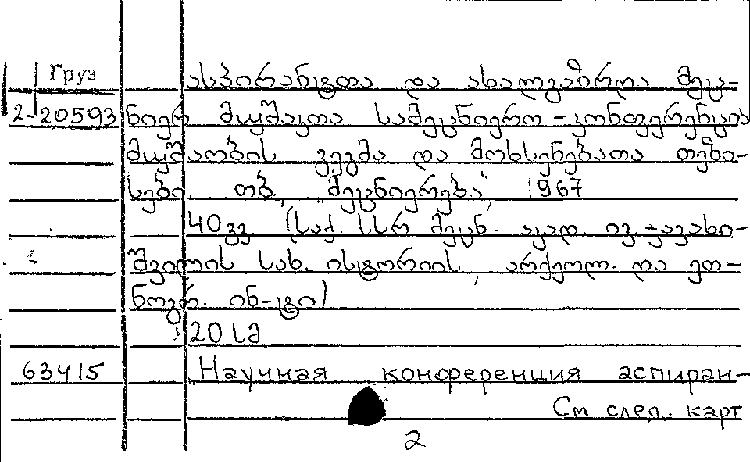 Груз
ასპირანტთა და ახალგაზრდა მეც-
2-20593 ნიერ მუშაკთა სამეცნიერო-კონფერენცია
მუშაობის გეგმა და მოხსენებათა თეზი-
სები თბ, "მეცნიერება", 1967
40 გვ. (საქ. სსრ მეცნ. აკად. ივ. ჯავახი-
შვილის სახ. ისტორიის, არქეოლ. და ეთ-
ნოგრ. ინ-ტი)
20 სმ
63415 Научная конференция аспиран-
См след. карт
2